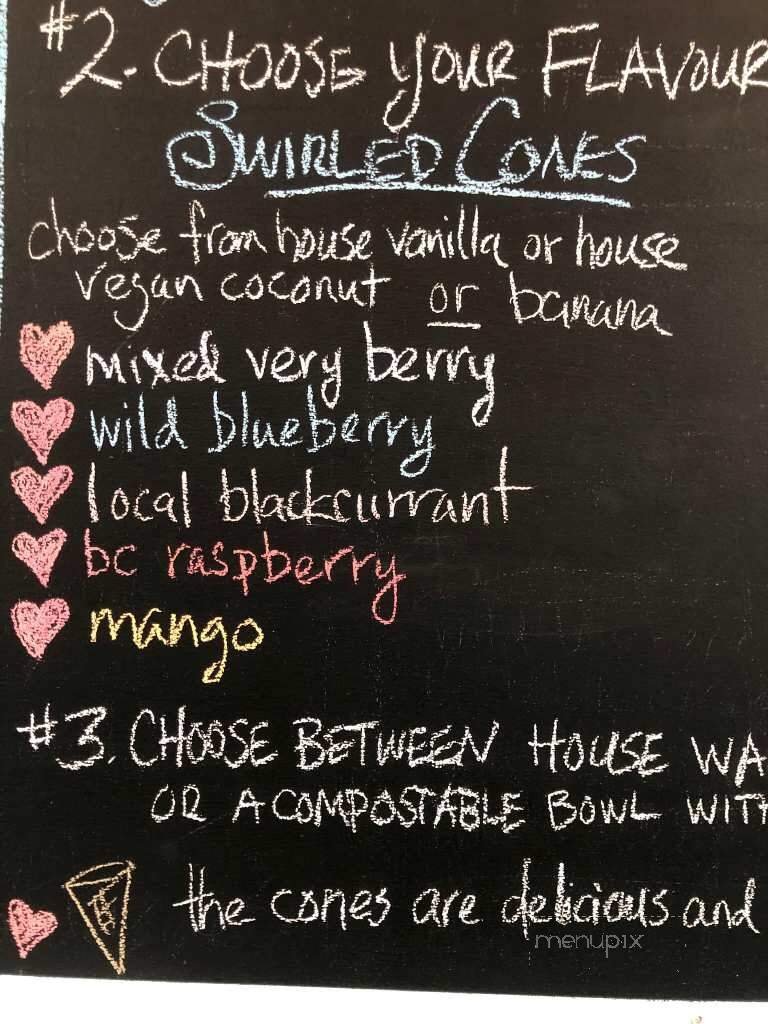 #2. CHOOSE YOUR FLAVOUR
SWIRLED CONES
choose from house vanilla or house
vegan coconut or banana
mixed very berry
wild blueberry
local blackcurrant
bc raspberry
mango
#3. CHOOSE BETWEEN HOUSE WA
OR A COMPOSTABLE BOWL WITH
the cones are delicious and
menupix